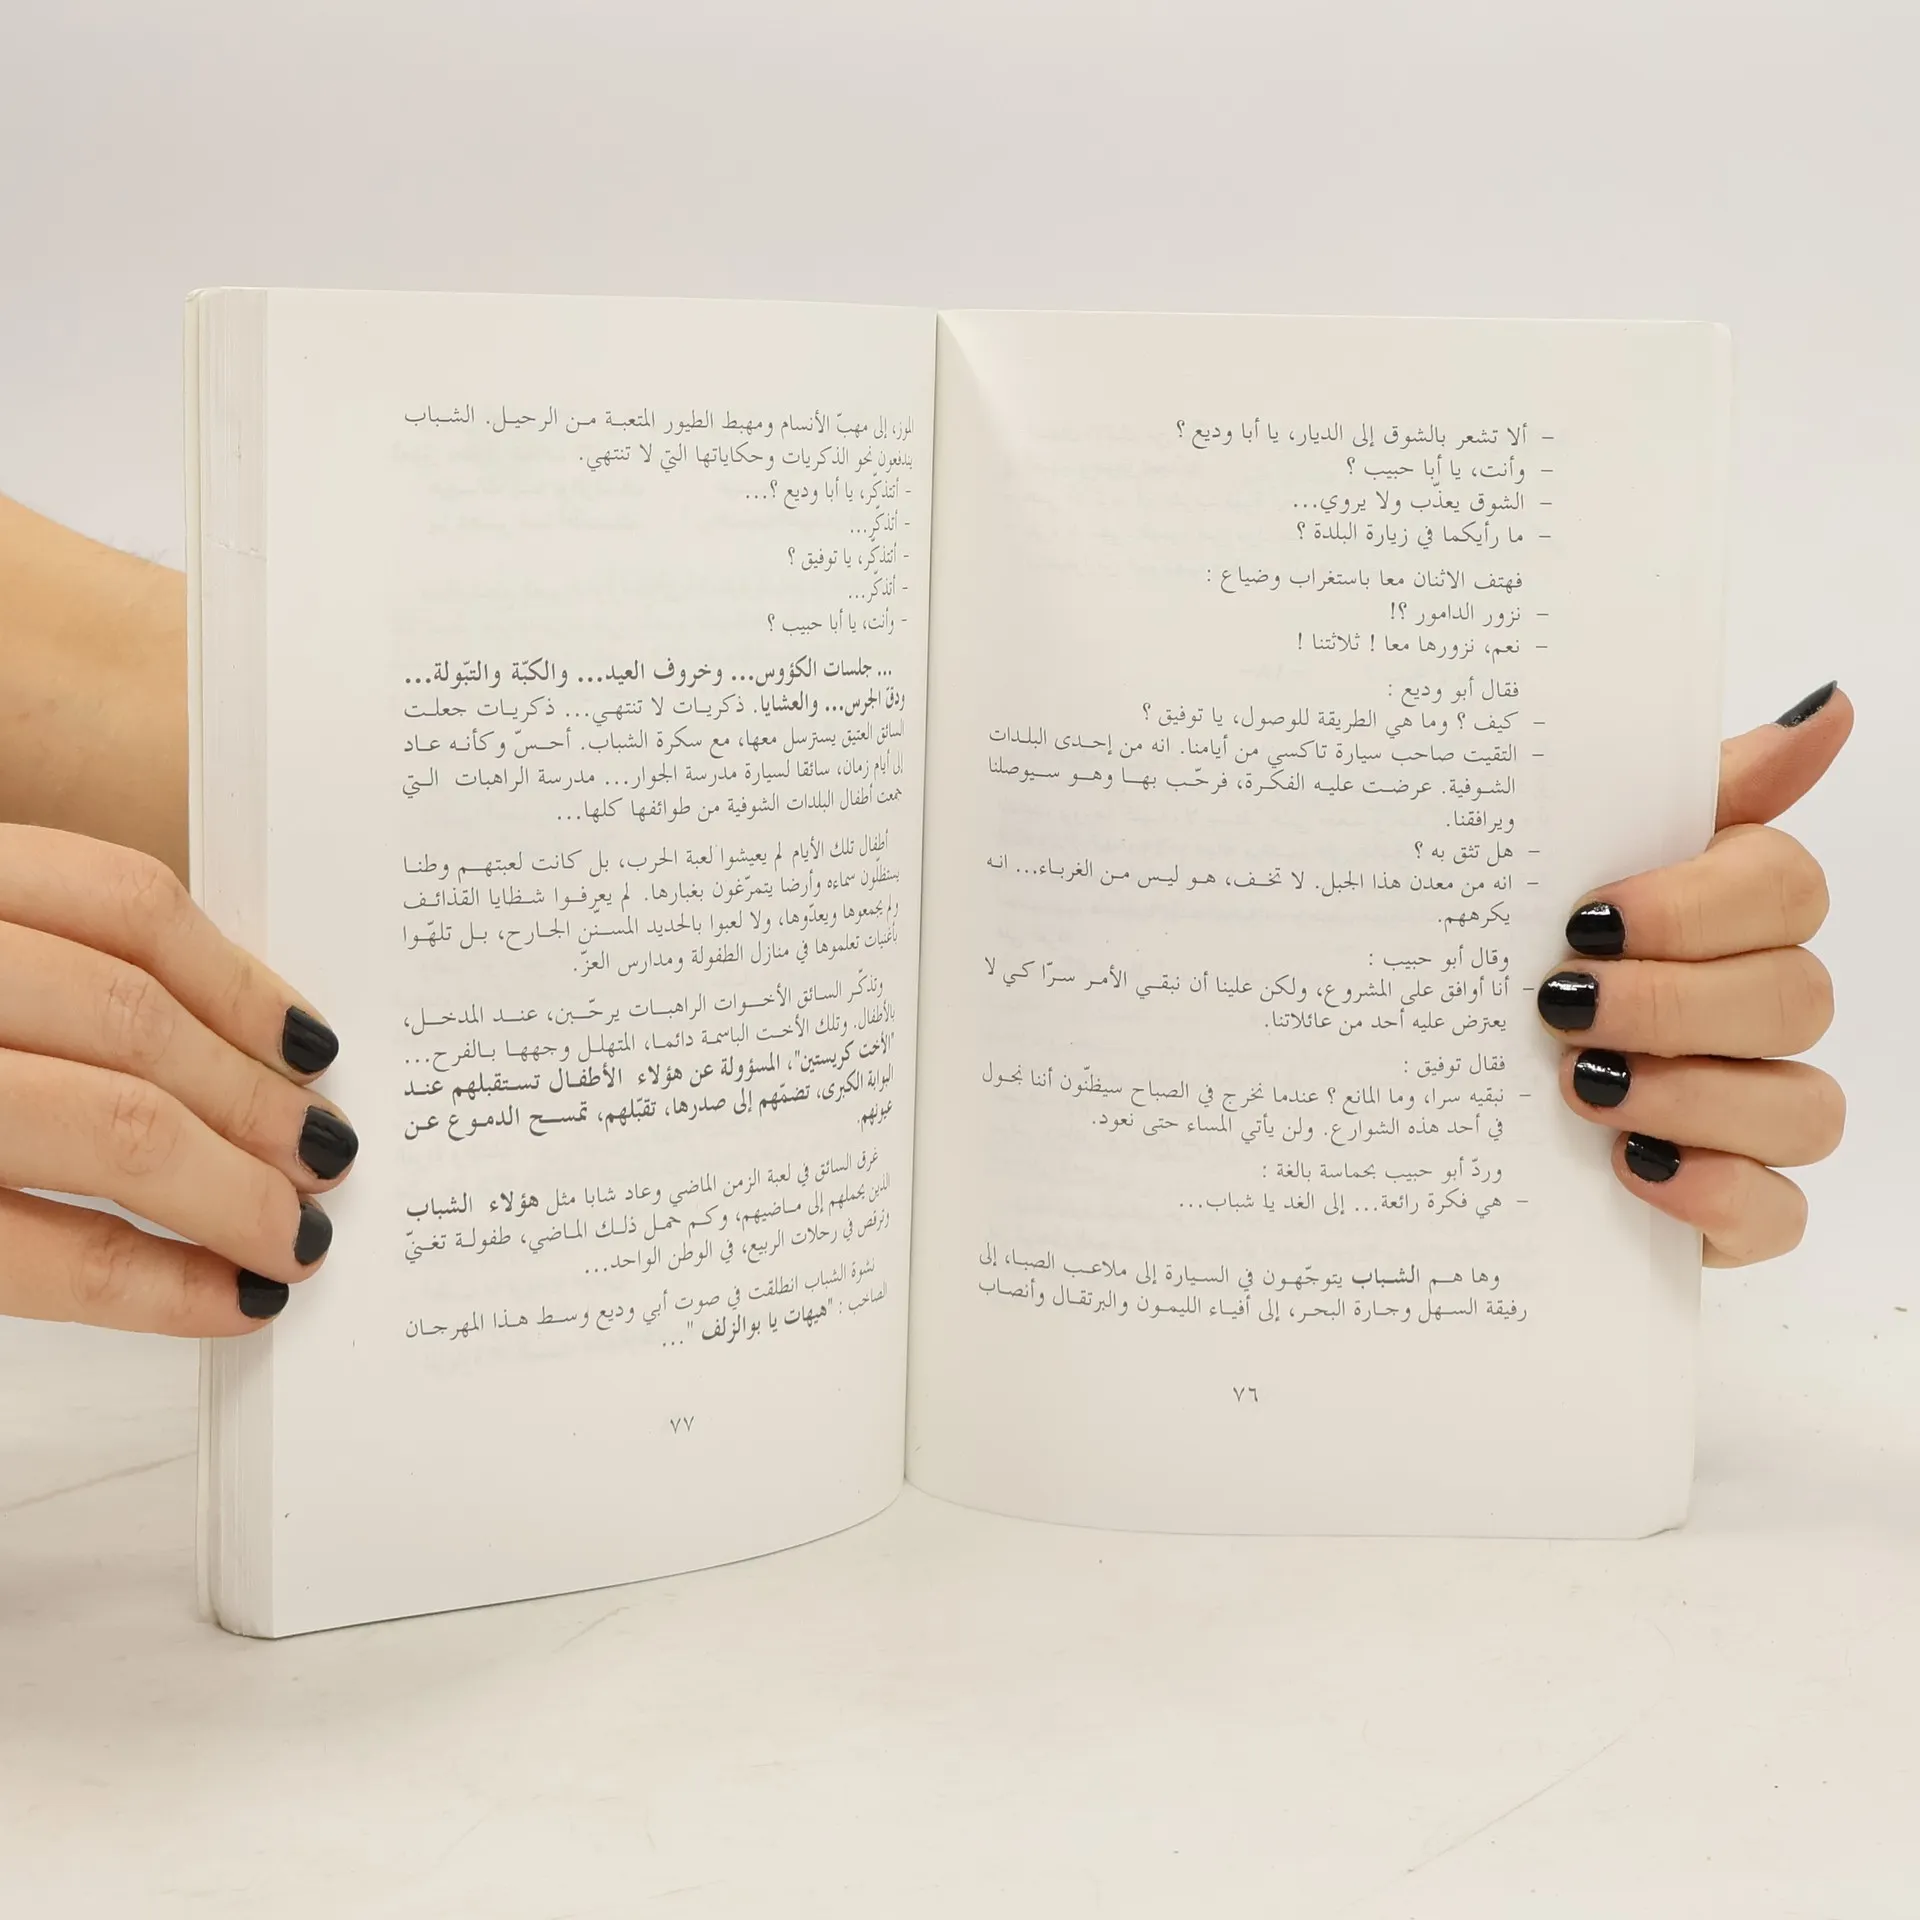 – ألا تشعر بالشوق إلى الديار، يا أبا وديع ؟
– وأنت، يا أبا حبيب ؟
– الشوق يعذّب ولا يروي...
– ما رأيكما في زيارة البلدة ؟
فهتف الاثنان معا باستغراب وضياع :
– نزور الدامور ؟!
– نعم، نزورها معا ! ثلاثتنا !
فقال أبو وديع :
– كيف ؟ وما هي الطريقة للوصول، يا توفيق ؟
– التقيت صاحب سيارة تاكسي من أيامنا. انه من إحدى البلدات
الشوفية. عرضت عليه الفكرة، فرحّب بها وهو سيوصلنا
ويرافقنا.
– هل تثق به ؟
– انه من معدن هذا الجبل. لا تخف، هو ليس من الغرباء... انه
يكرههم.
وقال أبو حبيب :
– أنا أوافق على المشروع، ولكن علينا أن نبقي الأمر سرّا كي لا
يعترض عليه أحد من عائلاتنا.
فقال توفيق :
– نبقيه سرا، وما المانع ؟ عندما نخرج في الصباح سيظنّون أننا نجول
في أحد هذه الشوارع. ولن يأتي المساء حتى نعود.
وردّ أبو حبيب بحماسة بالغة :
– هي فكرة رائعة... إلى الغد يا شباب...
وها هم الشباب يتوجّهون في السيارة إلى ملاعب الصبا، إلى
رفيقة السهل وجارة البحر، إلى أفياء الليمون والبرتقال وأنصاب
٧٦
الموز، إلى مهبّ الأنسام ومهبط الطيور المتعبة من الرحيل. الشباب
يندفعون نحو الذكريات وحكاياتها التي لا تنتهي.
- أتتذكّر، يا أبا وديع ؟...
- أتذكّر...
- أتتذكّر، يا توفيق ؟
- أتذكّر...
- وأنت، يا أبا حبيب ؟
... جلسات الكؤوس... وخروف العيد... والكبّة والتبّولة...
ودقّ الجرس... والعشايا. ذكريات لا تنتهي... ذكريات جعلت
السائق العتيق يسترسل معها، مع سكرة الشباب. أحسّ وكأنه عاد
إلى أيام زمان، سائقا لسيارة مدرسة الجوار... مدرسة الراهبات التي
جمعت أطفال البلدات الشوفية من طوائفها كلها...
أطفال تلك الأيام لم يعيشوا لعبة الحرب، بل كانت لعبتهم وطنا
يستظلّون سماءه وأرضا يتمرّغون بغبارها. لم يعرفوا شظايا القذائف
ولم يجمعوها ويعدّوها، ولا لعبوا بالحديد المسنّن الجارح، بل تلهّوا
بأغنيات تعلموها في منازل الطفولة ومدارس العزّ.
وتذكّر السائق الأخوات الراهبات يرحّبن، عند المدخل،
بالأطفال. وتلك الأخت الباسمة دائما، المتهلل وجهها بالفرح...
"الأخت كريستين"، المسؤولة عن هؤلاء الأطفال تستقبلهم عند
البوابة الكبرى، تضمّهم إلى صدرها، تقبّلهم، تمسح الدموع عن
عيونهم.
غرق السائق في لعبة الزمن الماضي وعاد شابا مثل هؤلاء الشباب
الذين يحملهم إلى ماضيهم، وكم حمل ذلك الماضي، طفولة تغنيّ
وترقص في رحلات الربيع، في الوطن الواحد...
نشوة الشباب انطلقت في صوت أبي وديع وسط هذا المهرجان
الصاخب : "هيهات يا بوالزلف "...
٧٧